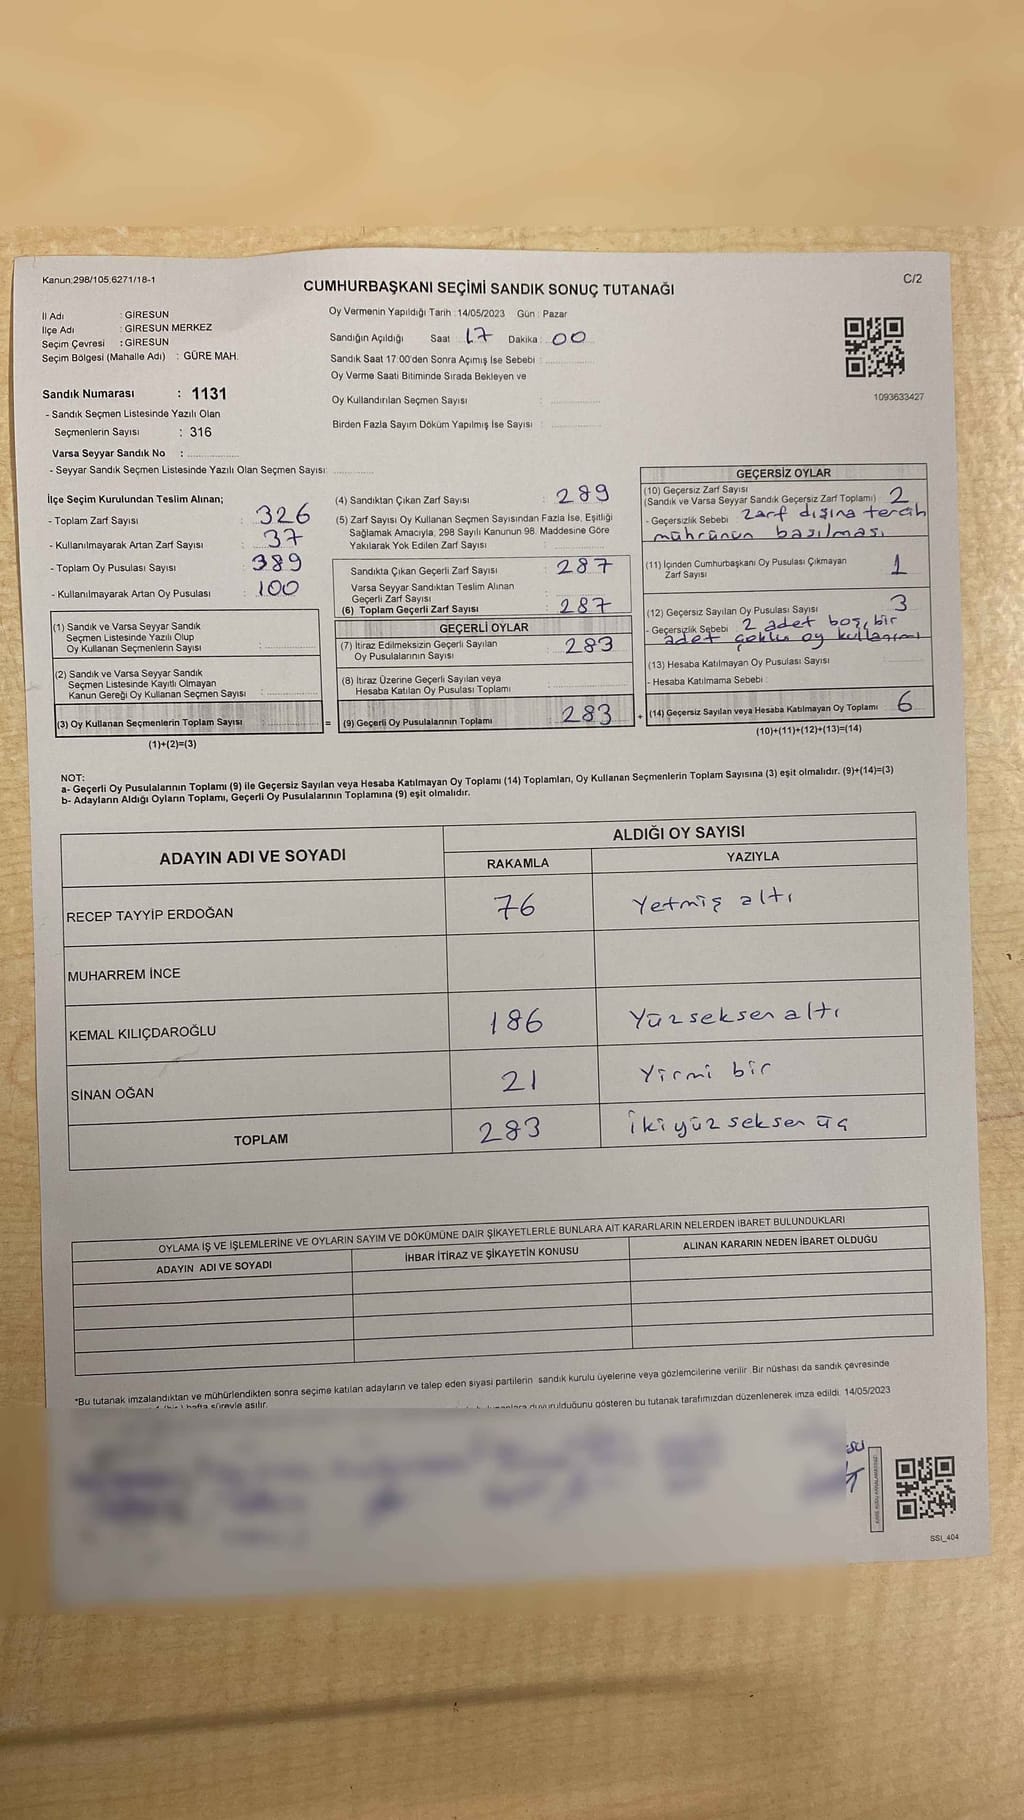 Kanun;298/105,6271/18-1
C/2
CUMHURBAŞKANI SEÇİMİ SANDIK SONUÇ TUTANAĞI
İl Adı : GİRESUN
İlçe Adı : GİRESUN MERKEZ
Seçim Çevresi : GİRESUN
Seçim Bölgesi (Mahalle Adı) : GÜRE MAH.
Oy Vermenin Yapıldığı Tarih :14/05/2023 Gün : Pazar
Sandığın Açıldığı Saat 17 Dakika : 00
Sandık Saat 17:00'den Sonra Açımış İse Sebebi :
Oy Verme Saati Bitiminde Sırada Bekleyen ve
Oy Kullandırılan Seçmen Sayısı :
Birden Fazla Sayım Döküm Yapılmış İse Sayısı :
1093633427
Sandık Numarası : 1131
- Sandık Seçmen Listesinde Yazılı Olan
Seçmenlerin Sayısı : 316
Varsa Seyyar Sandık No :
- Seyyar Sandık Seçmen Listesinde Yazılı Olan Seçmen Sayısı:
İlçe Seçim Kurulundan Teslim Alınan;
- Toplam Zarf Sayısı : 326
- Kullanılmayarak Artan Zarf Sayısı : 37
- Toplam Oy Pusulası Sayısı : 389
- Kullanılmayarak Artan Oy Pusulası : 100
(1) Sandık ve Varsa Seyyar Sandık
Seçmen Listesinde Yazılı Olup
Oy Kullanan Seçmenlerin Sayısı :
(2) Sandık ve Varsa Seyyar Sandık
Seçmen Listesinde Kayıtlı Olmayan
Kanun Gereği Oy Kullanan Seçmen Sayısı :
(3) Oy Kullanan Seçmenlerin Toplam Sayısı :
(1)+(2)=(3)
=
(4) Sandıktan Çıkan Zarf Sayısı : 289
(5) Zarf Sayısı Oy Kullanan Seçmen Sayısından Fazla İse, Eşitliği
Sağlamak Amacıyla, 298 Sayılı Kanunun 98. Maddesine Göre
Yakılarak Yok Edilen Zarf Sayısı :
Sandıkta Çıkan Geçerli Zarf Sayısı : 287
Varsa Seyyar Sandıktan Teslim Alınan
Geçerli Zarf Sayısı :
(6) Toplam Geçerli Zarf Sayısı : 287
GEÇERLİ OYLAR
(7) İtiraz Edilmeksizin Geçerli Sayılan
Oy Pusulalarının Sayısı : 283
(8) İtiraz Üzerine Geçerli Sayılan veya
Hesaba Katılan Oy Pusulası Toplamı :
(9) Geçerli Oy Pusulalarının Toplamı : 283
+
GEÇERSİZ OYLAR
(10) Geçersiz Zarf Sayısı
(Sandık ve Varsa Seyyar Sandık Geçersiz Zarf Toplamı) : 2
- Geçersizlik Sebebi : Zarf dışına tercih
mührünün basılması
(11) İçinden Cumhurbaşkanı Oy Pusulası Çıkmayan
Zarf Sayısı : 1
(12) Geçersiz Sayılan Oy Pusulası Sayısı : 3
- Geçersizlik Sebebi : 2 adet boş, bir
adet çoklu oy kullanımı
(13) Hesaba Katılmayan Oy Pusulası Sayısı :
- Hesaba Katılmama Sebebi :
(14) Geçersiz Sayılan veya Hesaba Katılmayan Oy Toplamı : 6
(10)+(11)+(12)+(13)=(14)
NOT:
a- Geçerli Oy Pusulalarının Toplamı (9) ile Geçersiz Sayılan veya Hesaba Katılmayan Oy Toplamı (14) Toplamları, Oy Kullanan Seçmenlerin Toplam Sayısına (3) eşit olmalıdır. (9)+(14)=(3)
b- Adayların Aldığı Oyların Toplamı, Geçerli Oy Pusulalarının Toplamına (9) eşit olmalıdır.
ADAYIN ADI VE SOYADI
ALDIĞI OY SAYISI
RAKAMLA YAZIYLA
RECEP TAYYİP ERDOĞAN 76 Yetmiş altı
MUHARREM İNCE
KEMAL KILIÇDAROĞLU 186 Yüzseksen altı
SİNAN OĞAN 21 Yirmi bir
TOPLAM 283 İkiyüz seksen üç
OYLAMA İŞ VE İŞLEMLERİNE VE OYLARIN SAYIM VE DÖKÜMÜNE DAİR ŞİKAYETLERLE BUNLARA AİT KARARLARIN NELERDEN İBARET BULUNDUKLARI
ADAYIN ADI VE SOYADI İHBAR İTİRAZ VE ŞİKAYETİN KONUSU ALINAN KARARIN NEDEN İBARET OLDUĞU
*Bu tutanak imzalandıktan ve mühürlendikten sonra seçime katılan adayların ve talep eden siyasi partilerin sandık kurulu üyelerine veya gözlemcilerine verilir .Bir nüshası da sandık çevresinde
hafta süreyle asılır.
duyurulduğunu gösteren bu tutanak tarafımızdan düzenlenerek imza edildi. 14/05/2023
SSI_404